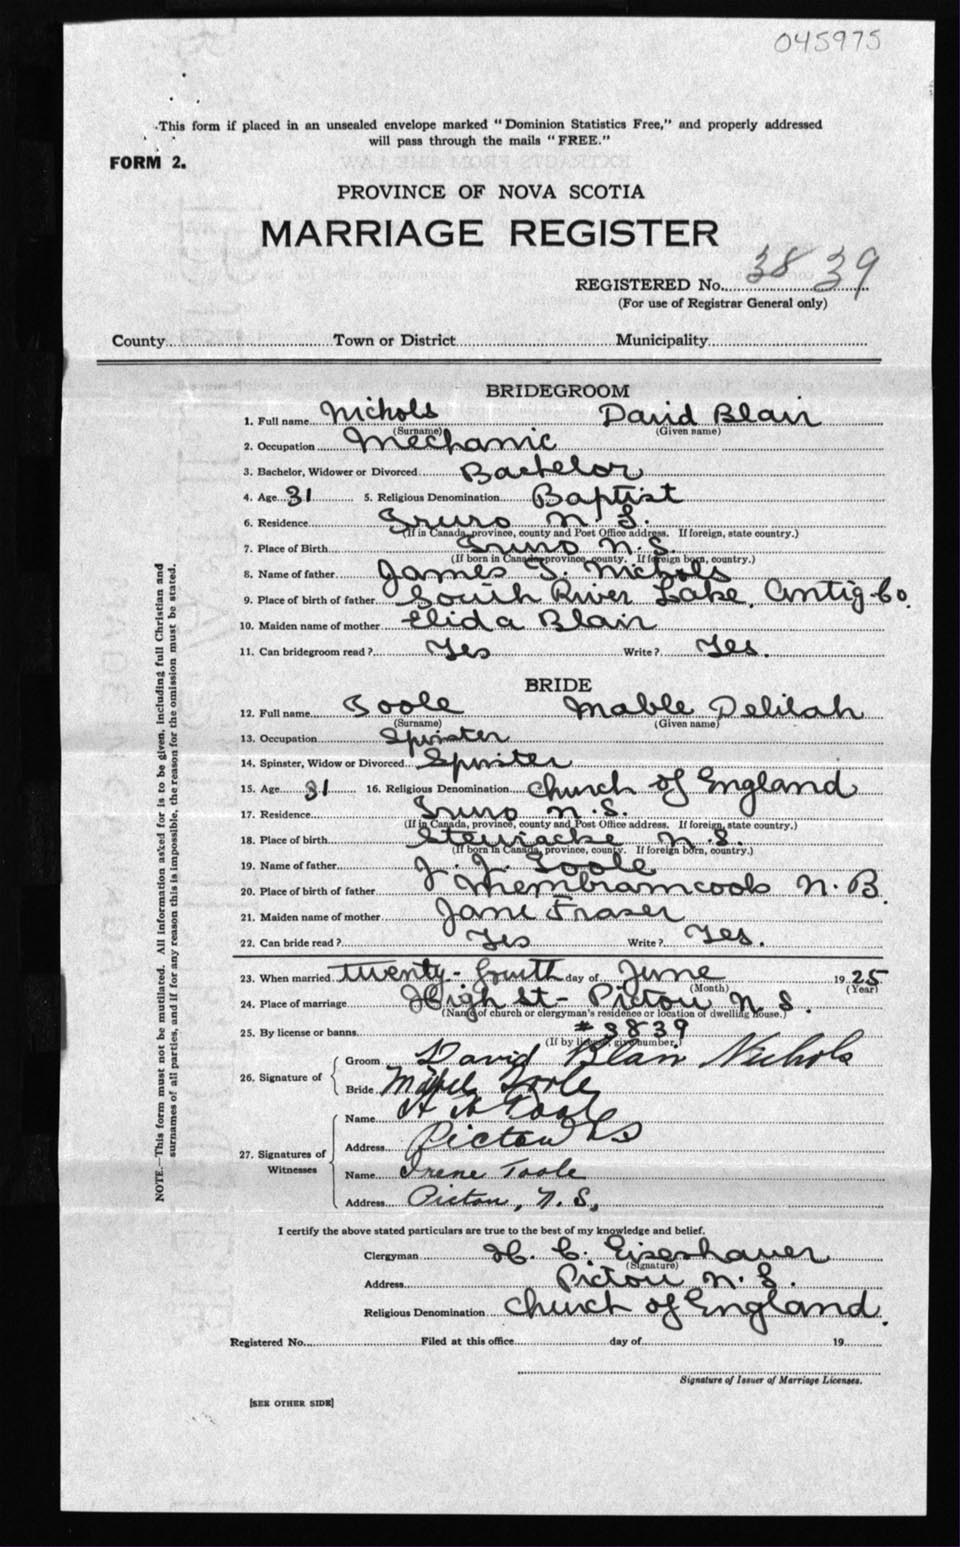 045975
This form if placed in an unsealed envelope marked "Dominion Statistics Free," and properly addressed
will pass through the mails "FREE."
FORM 2.
PROVINCE OF NOVA SCOTIA
MARRIAGE REGISTER
REGISTERED No. 3839
(For use of Registrar General only)
County Town or District Municipality
BRIDEGROOM
1. Full name Nichols David Blair
(Surname) (Given name)
2. Occupation Mechanic
3. Bachelor, Widower or Divorced Bachelor
4. Age 31 5. Religious Denomination Baptist
6. Residence Truro N. S.
(If in Canada, province, county and Post Office address. If foreign, state country.)
7. Place of Birth Truro N. S.
(If born in Canada, province, county. If foreign born, country.)
8. Name of father James S. Nichols
9. Place of birth of father South River Lake, Antig Co.
10. Maiden name of mother Elida Blair
11. Can bridegroom read? Yes Write? Yes.
BRIDE
12. Full name Toole Mable Delilah
(Surname) (Given name)
13. Occupation Spinster
14. Spinster, Widow or Divorced Spinster
15. Age 31 16. Religious Denomination Church of England
17. Residence Truro N. S.
(If in Canada, province, county and Post Office address. If foreign, state country.)
18. Place of birth Stewiacke N. S.
(If born in Canada, province, county. If foreign born, country.)
19. Name of father J. J. Toole
20. Place of birth of father Membramcook N. B.
21. Maiden name of mother Jane Fraser
22. Can bride read? Yes Write? Yes.
23. When married twenty-fourth day of June 1925
(Month) (Year)
24. Place of marriage High St - Pictou N S.
(Name of church or clergyman's residence or location of dwelling house.)
25. By license or banns # 3839
(If by license, give number.)
26. Signature of
Groom David Blair Nichols
Bride Mabel Toole
27. Signatures of Witnesses
Name Toole
Address Pictou N S
Name Irene Toole
Address Pictou, N. S.,
I certify the above stated particulars are true to the best of my knowledge and belief.
Clergyman H. C. Eisenhauer
(Signature)
Address Pictou N. S.
Religious Denomination Church of England.
Registered No. Filed at this office day of 19
Signature of Issuer of Marriage Licenses.
[SEE OTHER SIDE]
NOTE.—This form must not be mutilated. All information asked for is to be given, including full Christian and
surnames of all parties, and if for any reason this is impossible, the reason for the omission must be stated.